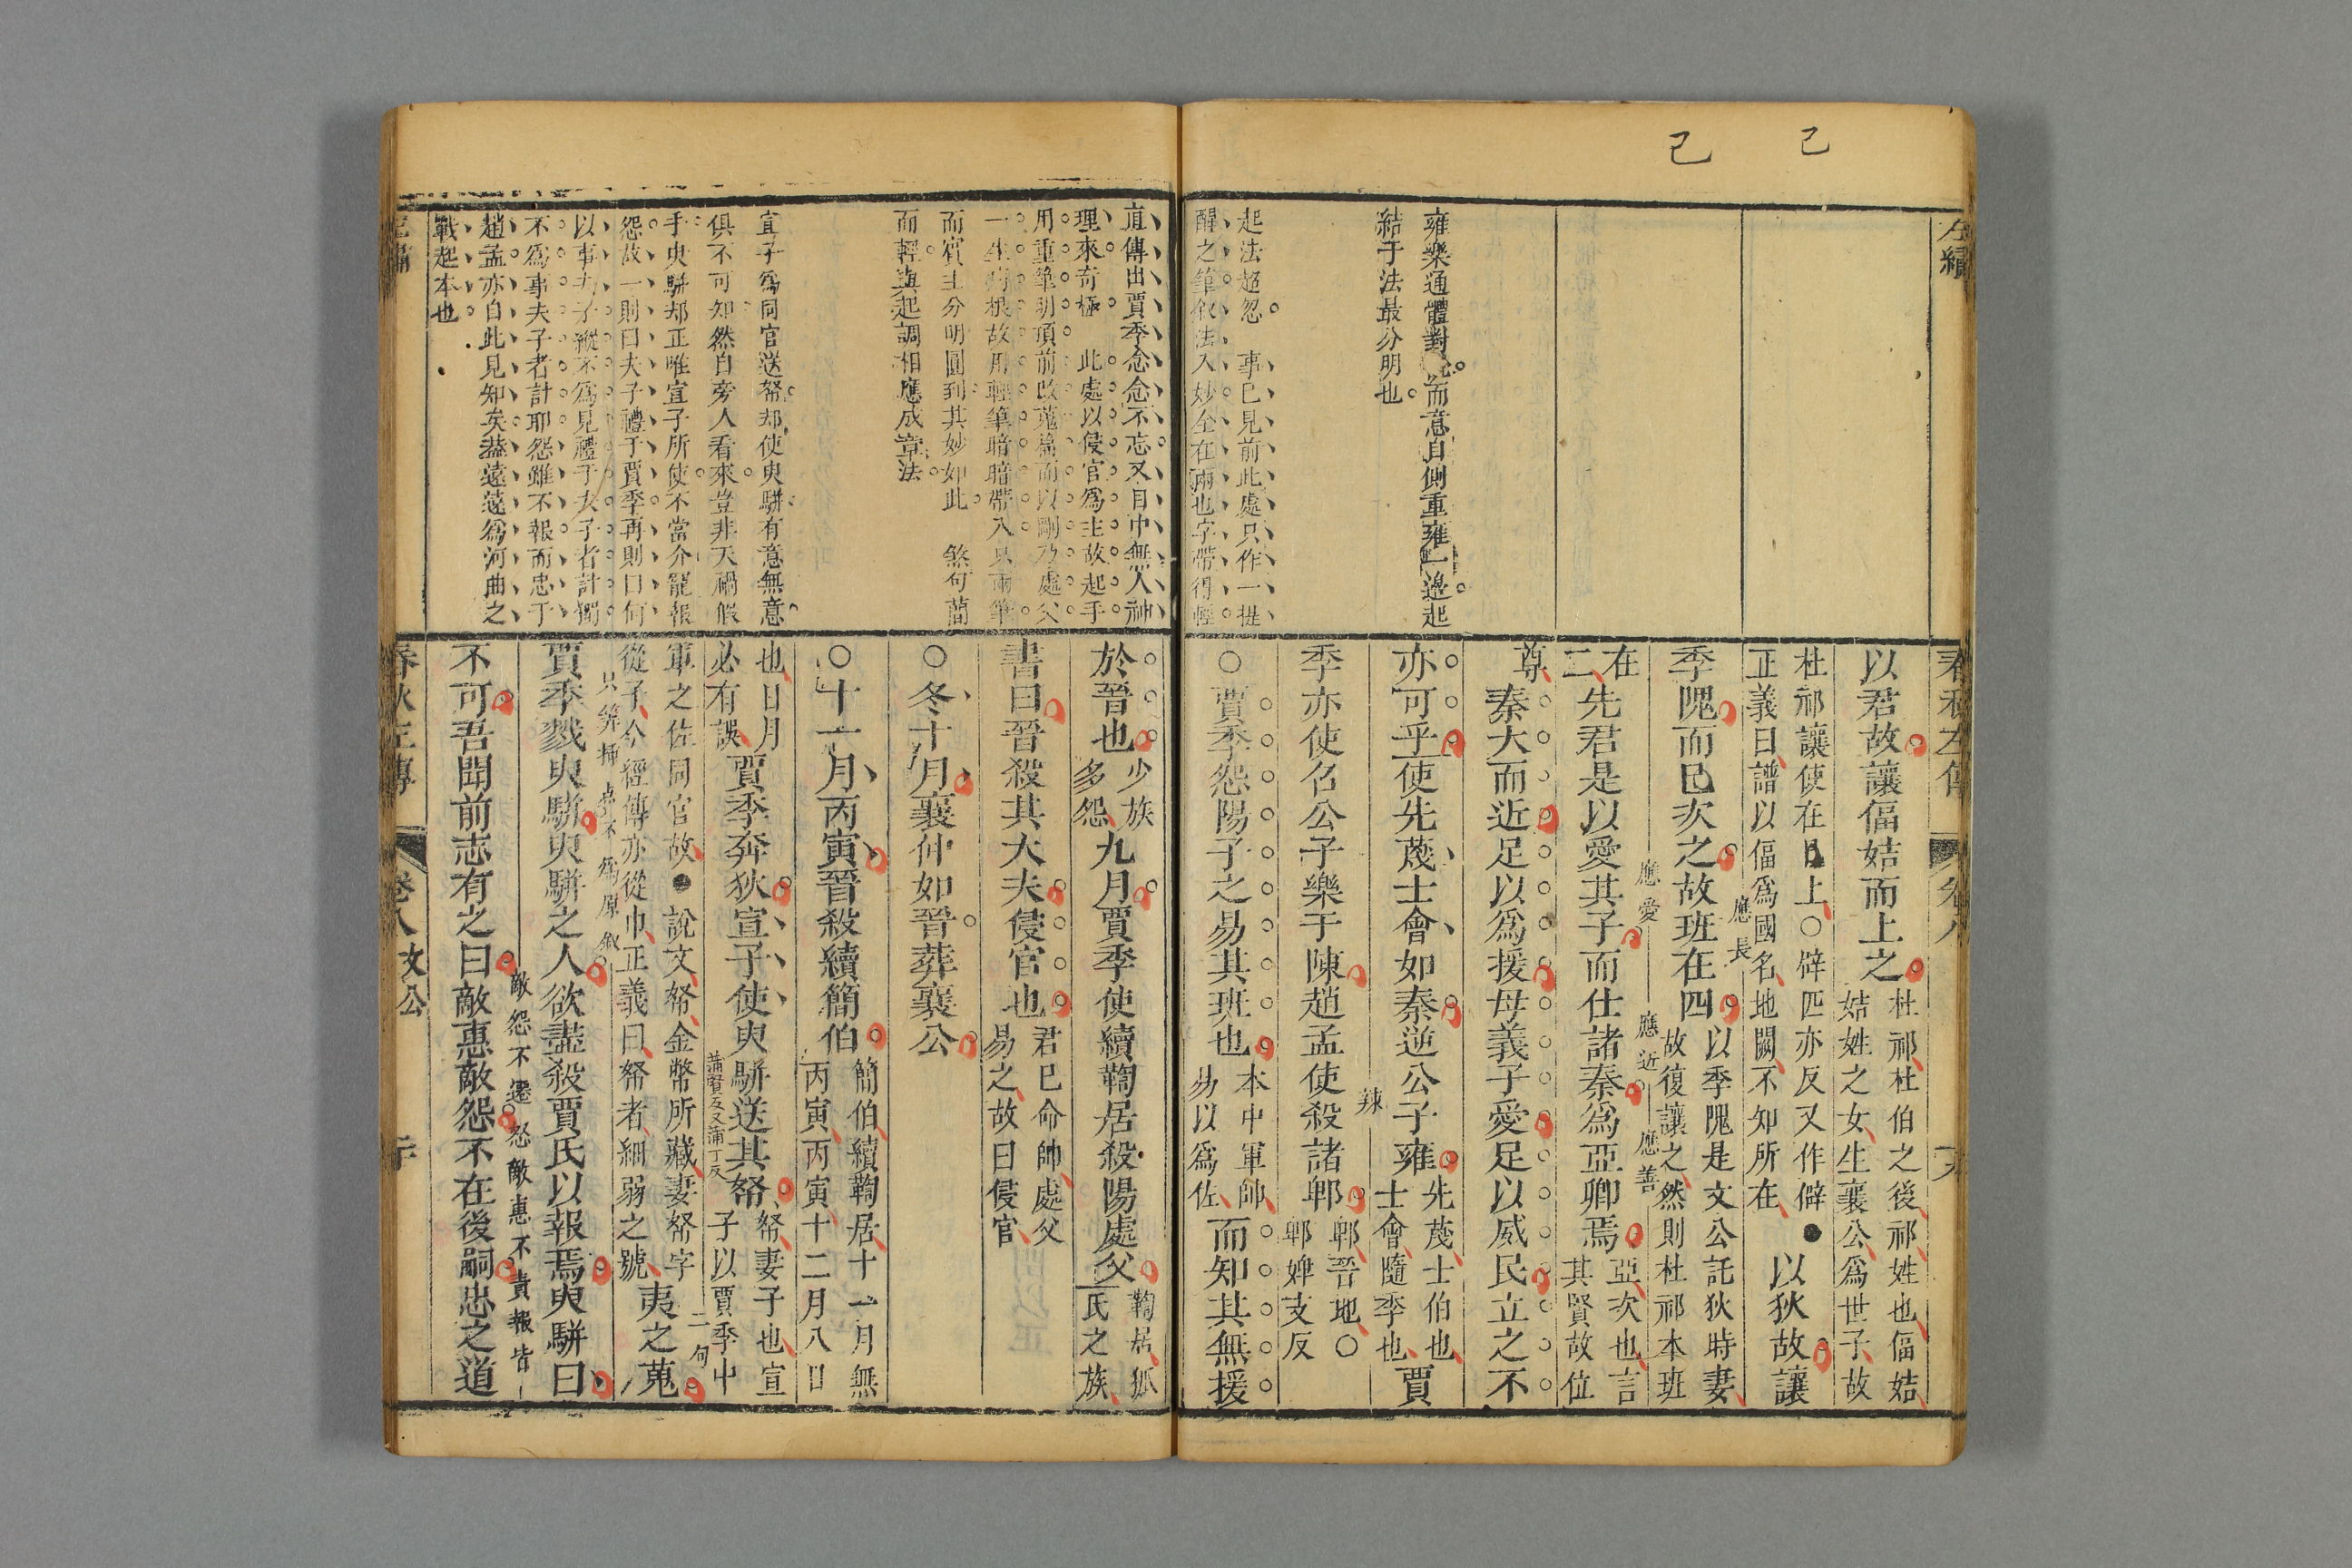 己
己
左繡
雍樂通體對說而意自側重雍一邊起
結于法最分明也
起法超忽 事已見前此處只作一提
醒之筆敘法入妙全在兩也字帶得輕
春秋左傳 卷八
以君故讓偪姞而上之杜祁杜伯之後祁姓也偪姞
姞姓之女生襄公為世子故
杜祁讓使在己上○偪匹亦反又作偪●以狄故讓
正義曰譜以偪為國名地闕不知所在
應長
季隗而己次之故班在四以季隗是文公託狄時妻
故復讓之然則杜祁本班
應愛
應近
應善
在二先君是以愛其子而仕諸秦為亞卿焉亞次也言
其賢故位
尊秦大而近足以為援母義子愛足以威民立之不
亦可乎使先蔑士會如秦逆公子雍先蔑士伯也
士會隨季也賈
辣
季亦使召公子樂于陳趙孟使殺諸郫郫晉地○
郫婢支反
○賈季怨陽子之易其班也本中軍帥
易以為佐而知其無援
直傳出賈季念念不忘又目中無人神
理來奇極 此處以侵官為主故起手
用重筆羽頂前改蒐篇而以剛乃處父
一生病根故用輕筆暗暗帶入只兩筆
而賓主分明圓到其妙如此 煞句蕳
而輕與起調相應成章法
宣子為同官送帑却使臾駢有意無意
俱不可知然自旁人看來豈非天禍假
手臾駢却正唯宣子所使不當介寵報
怨故一則曰夫子禮于賈季再則曰何
以事夫子縱不為見禮于夫子者計獨
不為事夫子者計耶怨雖不報而忠于
趙孟亦自此見知矣蓋遠遠為河曲之
戰起本也
於晉也少族
多怨九月賈季使續鞫居殺陽處父鞫居狐
氏之族
書曰晉殺其大夫侵官也君已命帥處父
易之故曰侵官
○冬十月襄仲如晉葬襄公
○十一月丙寅晉殺續簡伯簡伯續鞫居十一月無
丙寅丙寅十二月八日
也日月
必有誤賈季奔狄宣子使臾駢送其帑帑妻子也宣
子以賈季中
蒲賢反又蒲丁反
軍之佐同官故●說文帑金幣所藏妻帑字
從子今經傳亦從巾正義曰帑者細弱之號夷之蒐
二句
只算插點不為原敘
賈季戮臾駢臾駢之人欲盡殺賈氏以報焉臾駢曰
敵怨不遷怒敵惠不責報皆
不可吾聞前志有之曰敵惠敵怨不在後嗣忠之道
春秋左傳 卷八 文公